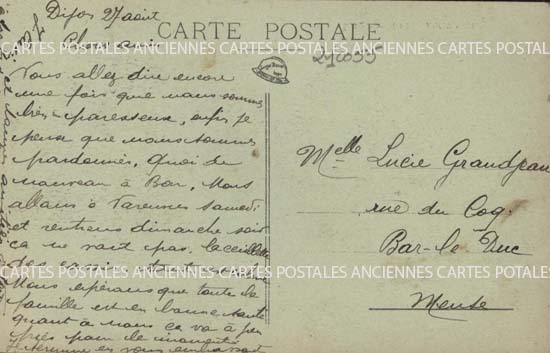 Dijon 27 août
CARTE POSTALE
27035
CARTES POSTALES ANCIENNES CARTES POSTALES ANCIENNES CARTES POSTALES
Vous allez dire encore
une fois que nous sommes
très paresseux, enfin je
pense que nous sommes
pardonnés, Quoi de
nouveau à Bar, Nous
allons à Varennes samedi
et rentrons dimanche soir
ça ne vaut pas la cueillette
des
CARTES POSTALES ANCIENNES CARTES POSTALES ANCIENNES CARTES POSTALES
Nous espérons que toute la
famille est en bonne santé
quant à nous ça va à peu
près pour le moment
Je termine en vous embrassant
Melle Lucie Grandjean
rue du Coq.
Bar-le-Duc
Meuse